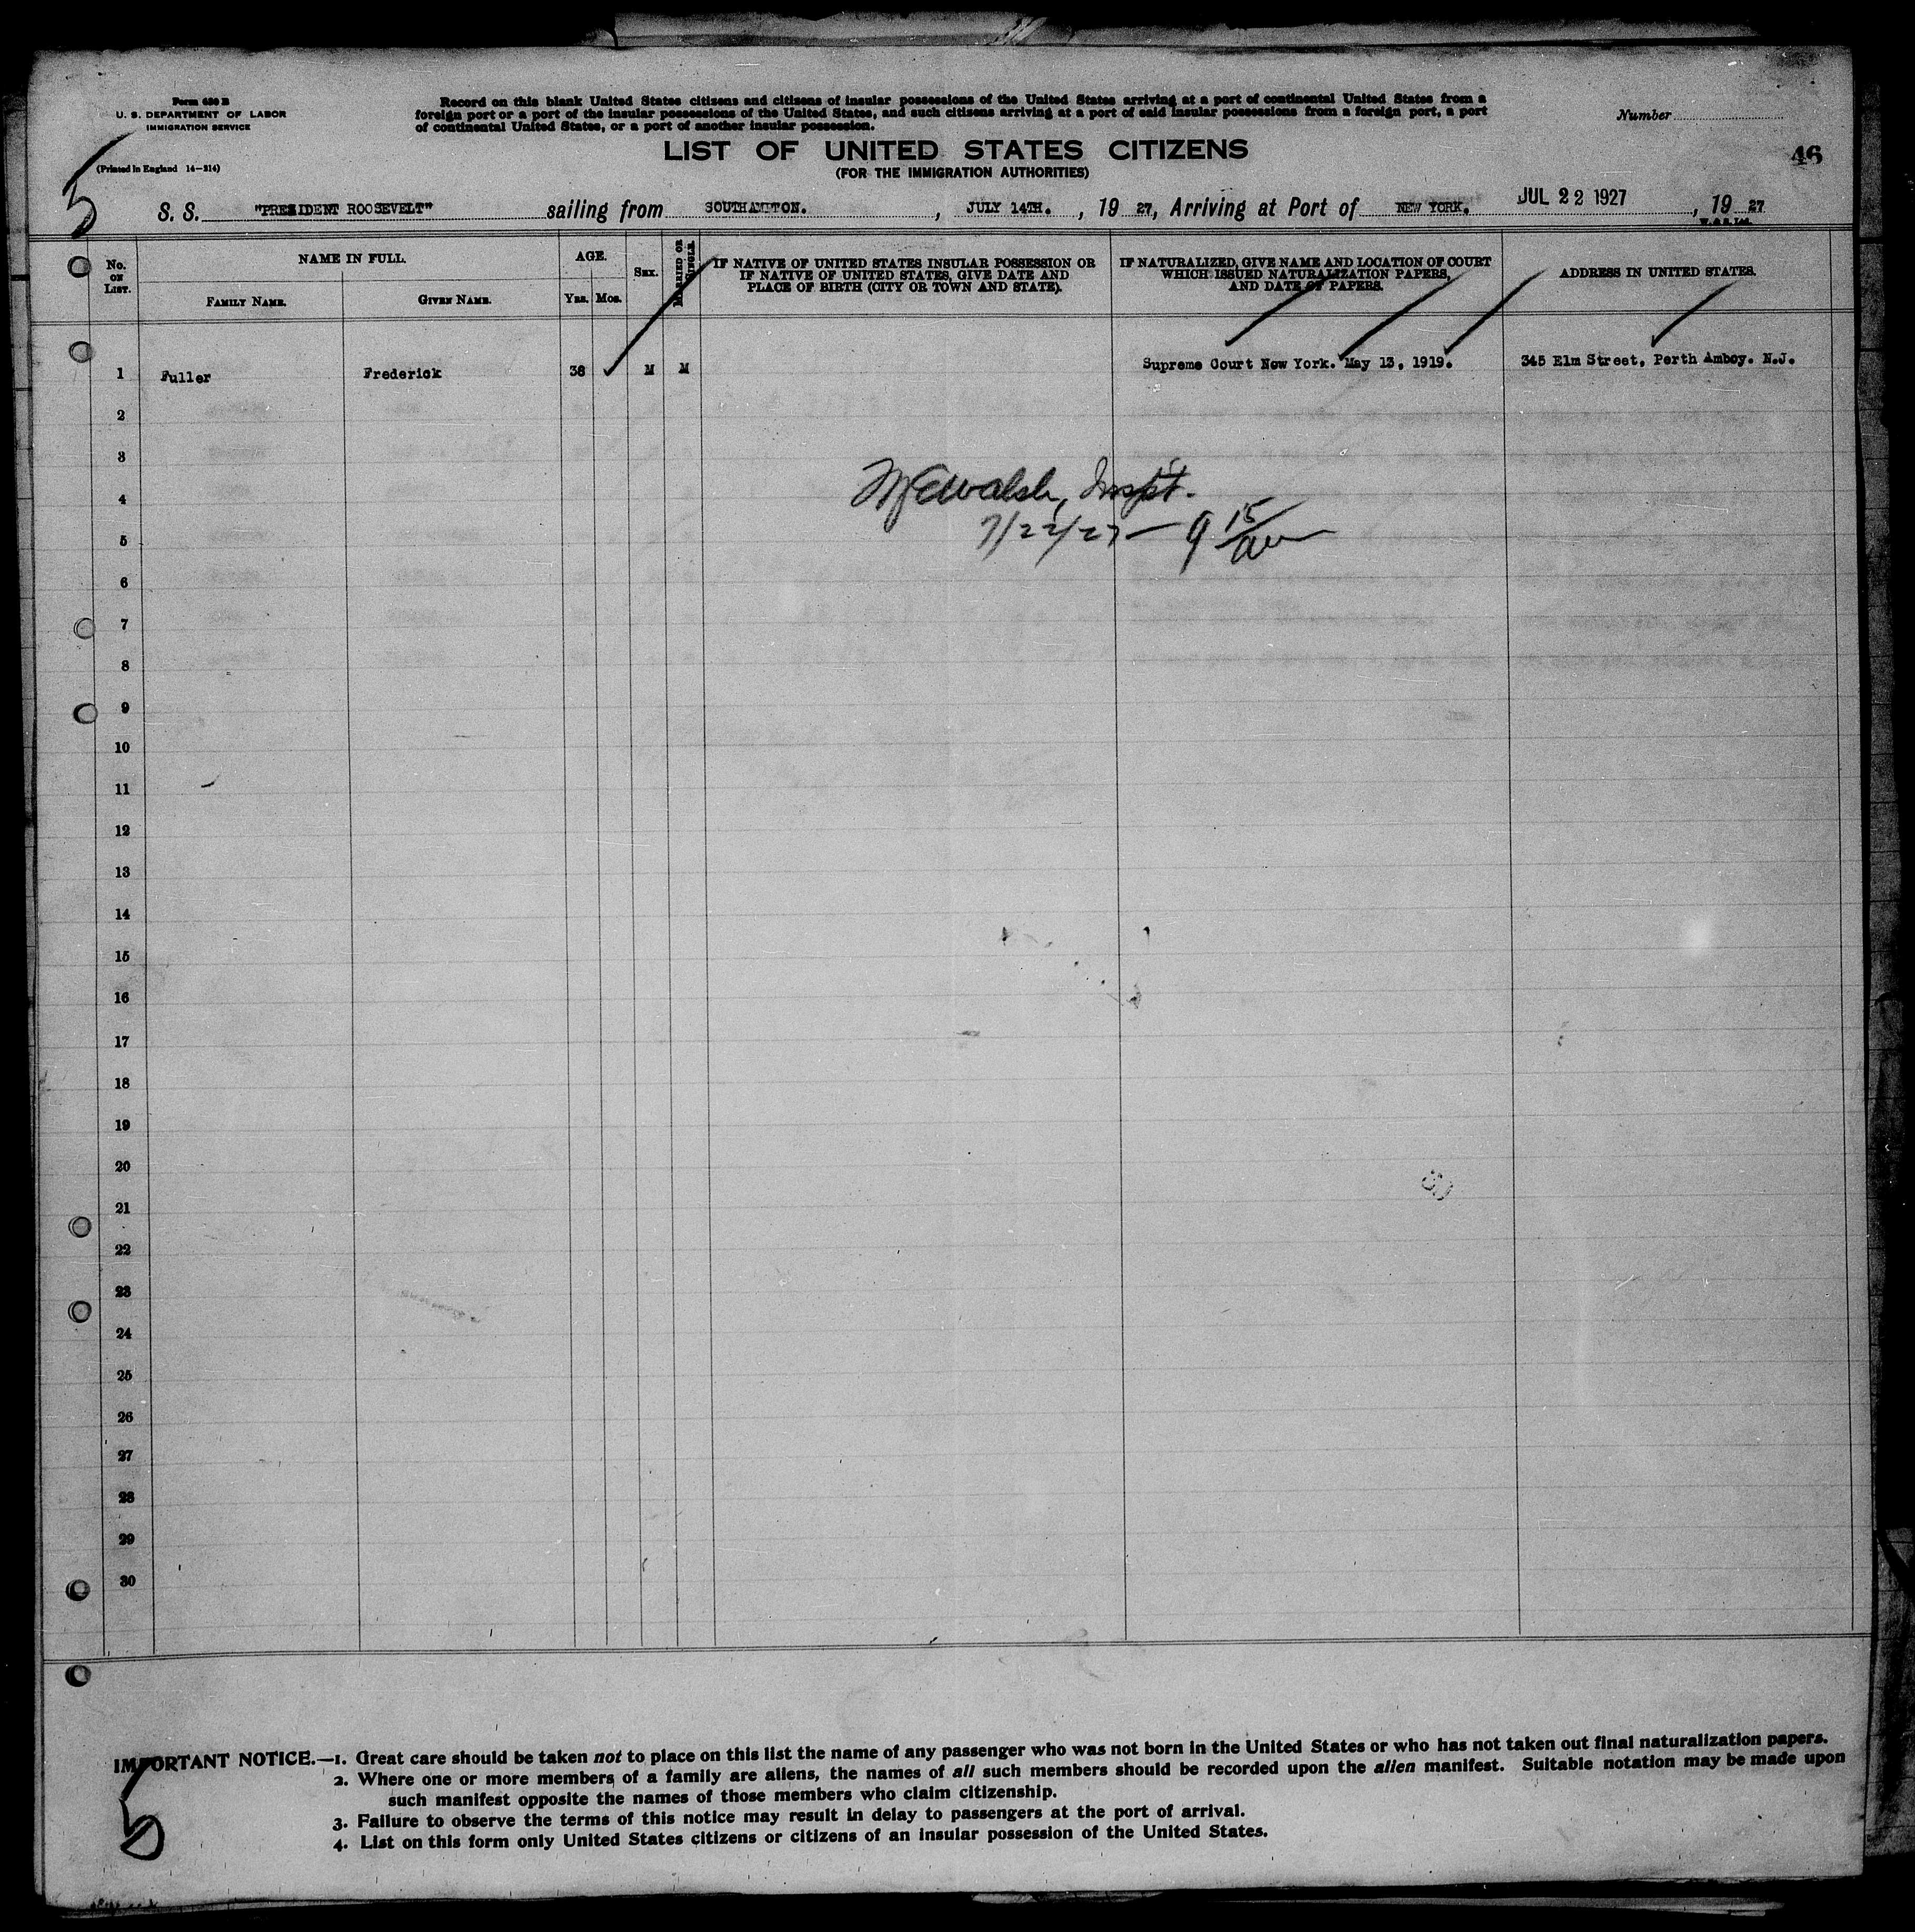 Form 630 B
U. S. DEPARTMENT OF LABOR
IMMIGRATION SERVICE
(Printed in England 14-214)
Record on this blank United States citizens and citizens of insular possessions of the United States arriving at a port of continental United States from a
foreign port or a port of the insular possessions of the United States, and such citizens arriving at a port of said insular possessions from a foreign port, a port
of continental United States, or a port of another insular possession.
Number
46
LIST OF UNITED STATES CITIZENS
(FOR THE IMMIGRATION AUTHORITIES)
5
S. S. "PRESIDENT ROOSEVELT" sailing from SOUTHAMPTON. , JULY 14TH. , 19 27, Arriving at Port of NEW YORK. JUL 22 1927 , 19 27
W. & S. Ltd.
No. ON LIST.
NAME IN FULL.
FAMILY NAME.
GIVEN NAME.
AGE.
YRS. MOS.
SEX.
MARRIED OR SINGLE.
IF NATIVE OF UNITED STATES INSULAR POSSESSION OR
IF NATIVE OF UNITED STATES, GIVE DATE AND
PLACE OF BIRTH (CITY OR TOWN AND STATE).
IF NATURALIZED, GIVE NAME AND LOCATION OF COURT
WHICH ISSUED NATURALIZATION PAPERS,
AND DATE OF PAPERS.
ADDRESS IN UNITED STATES.
1 Fuller Frederick 36 M M Supreme Court New York. May 13, 1919. 345 Elm Street, Perth Amboy. N.J.
2
3
4
Walsh, Inspt.
7/22/27 — 9 15/am
5
6
7
8
9
10
11
12
13
14
15
16
17
18
19
20
21
22
23
24
25
26
27
28
29
30
IMPORTANT NOTICE.—1. Great care should be taken not to place on this list the name of any passenger who was not born in the United States or who has not taken out final naturalization papers.
2. Where one or more members of a family are aliens, the names of all such members should be recorded upon the alien manifest. Suitable notation may be made upon
such manifest opposite the names of those members who claim citizenship.
3. Failure to observe the terms of this notice may result in delay to passengers at the port of arrival.
4. List on this form only United States citizens or citizens of an insular possession of the United States.
5